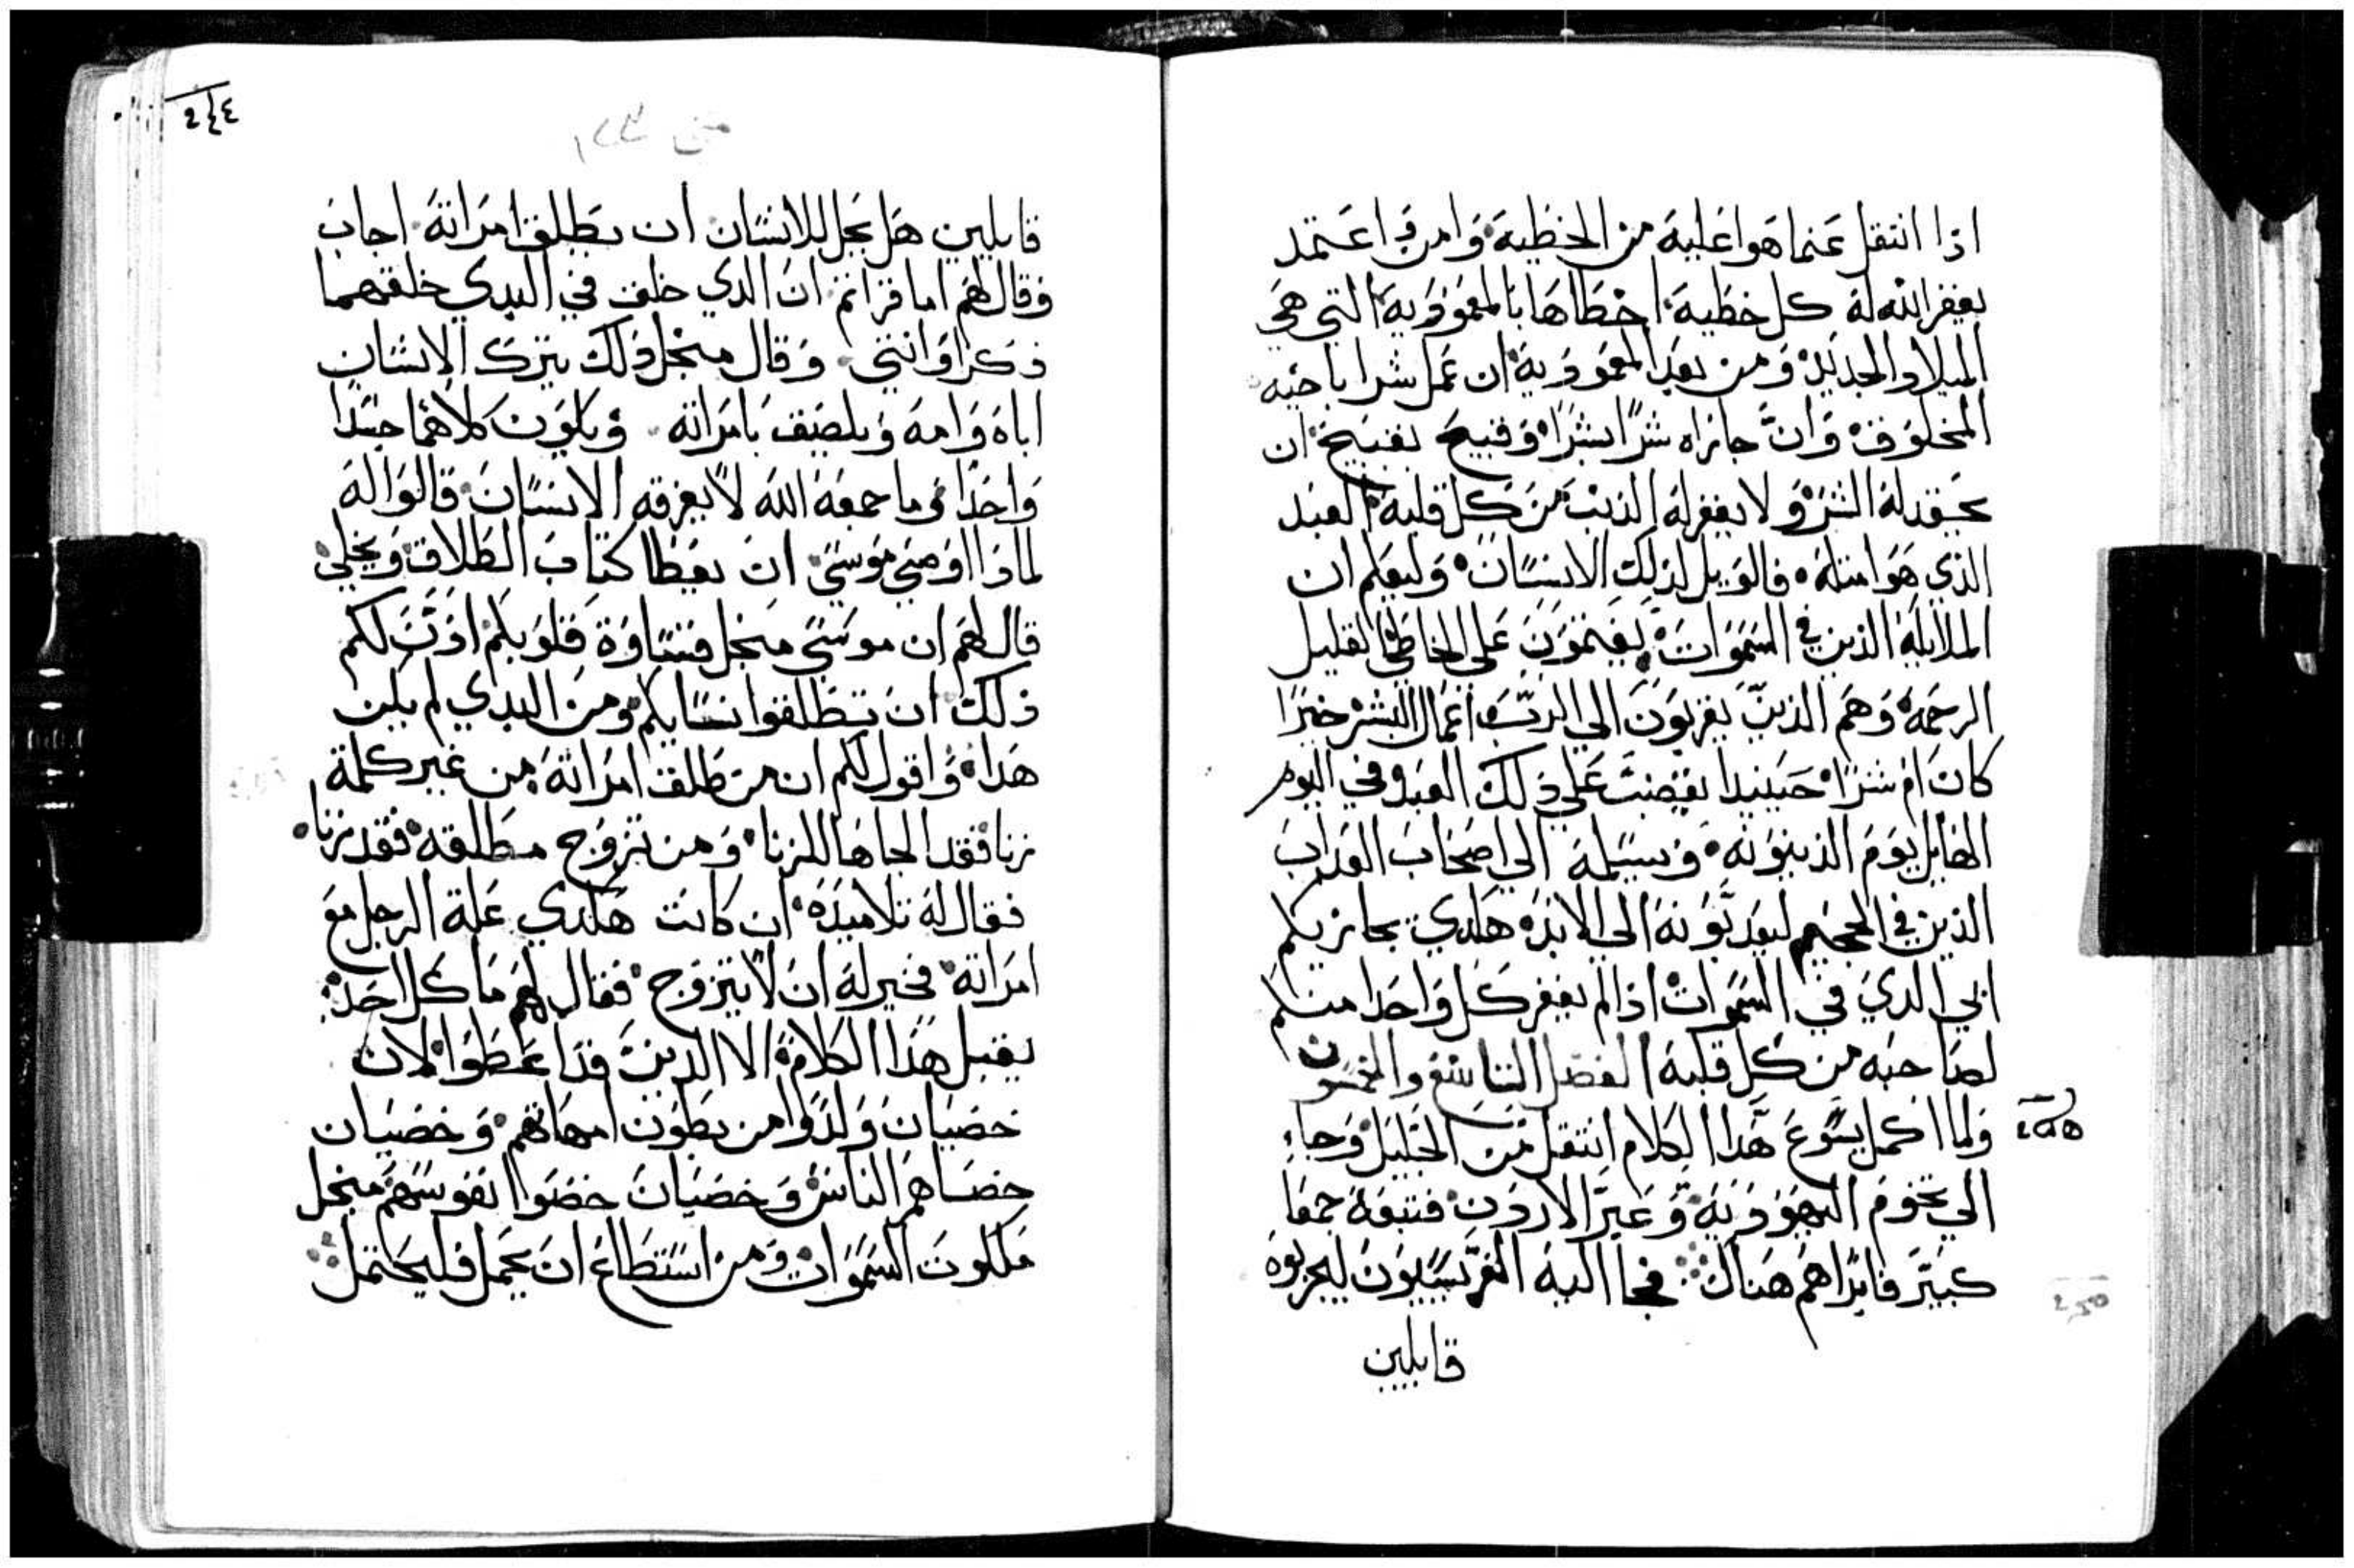 اذا انتقل عنما هوا عليه من الخطيه وامن واعتمد
يغفر الله له كل خطيه اخطاها بالمعموديه التي هي
الميلاد الجديد ومن بعد المعموديه ان عمل شرا باخيه
المخلوق وان جازاه شرا بشرا وقبيح بقبيح ان
يحقد له الشر ولا يغفر له الذنب من كل قلبه العبد
الذي هوا مثله فالويل لذلك الانسان وليعلم ان
الملايكه الذين في السموات يغتمون على الخاطي القليل
الرحمه وهم الذين يقربون الي الرب اعمال البشر خيرا
كان ام شرا حينيدا يغضب علي ذلك العبد في اليوم
الهايل يوم الدينونه ويسلمه الي اصحاب العداب
الذين في الجحيم ليعدبونه الي الابد هاكدي يجازيكم
ابي الدي في السموات اذا لم يغفر كل واحدا منكم
لصاحبه من كل قلبه الفصل التاسع والخمسون
ولما اكمل يسوع هدا الكلام انتقل من الجليل وجاء
الي تخوم اليهوديه وعبر الاردن فتبعه جمعا
كبير فابراهم هناك فجا اليه الفريسيون ليجربوه
قايلين
قايلين هل يحل للانسان ان يطلق امراته اجاب
وقال لهم اما قراتم ان الدي خلق في البدي خلقهما
ذكرا وانثي وقال منجل ذلك يترك الانسان
اباه وامه ويلصق بامراته ويكون كلاهما جسدا
واحدا وما جمعه الله لا يفرقه الانسان قالوا له
لماذا اوصي موسي ان يعطا كتاب الطلاق ويخلي
قال لهم ان موسي منجل قساوة قلوبكم اذن لكم
ذلك ان تطلقوا نسايكم ومن البدي لم يكن
هدا واقول لكم ان من طلق امراته من غير كلمة
زنا فقد الجاها للزنا ومن تزوج مطلقه فقد زنا
فقال له تلاميذه ان كانت هاكدي علة الرجل مع
امراته فخير له ان لا يتزوج فقال لهم ما كل احد
يقبل هدا الكلام الا الدين قد اعطوا لان
خصيان ولدوا من بطون امهاتهم وخصيان
خصاهم الناس وخصيان خصوا نفوسهم منجل
ملكوت السموات ومن استطاع ان يحمل فليحتمل